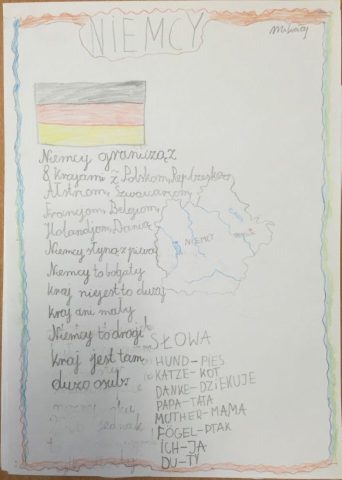 NIEMCY
Niemcy graniczą z
8 krajami z Polskom, Republeskom
Alstriom, Szwajcariom,
Francjom, Belgiom,
Holandjom, Daniom
Niemcy słyną z piwa
Niemcy to bogaty
kraj niejest to duzaj
kraj ani mały
Niemcy to drogi
kraj jest tam
duzo osub
NIEMCY
SŁOWA
HUND-PIES
KATZE-KOT
DANKE-DZIEKUJE
PAPA-TATA
MUTHER-MAMA
FOGEL-PTAK
ICH-JA
DU-TY